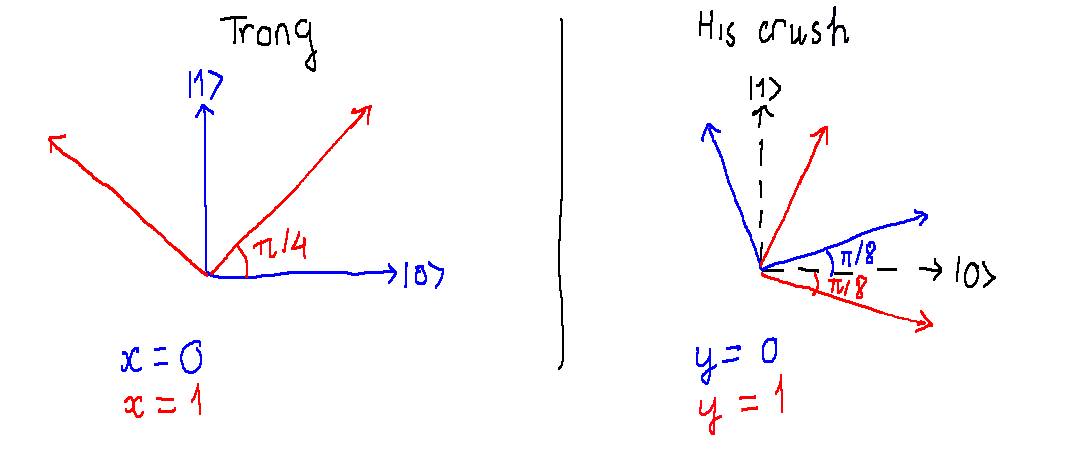 Trong
|1⟩
π/4
|0⟩
x = 0
x = 1
His crush
|1⟩
π/8
π/8
|0⟩
y = 0
y = 1